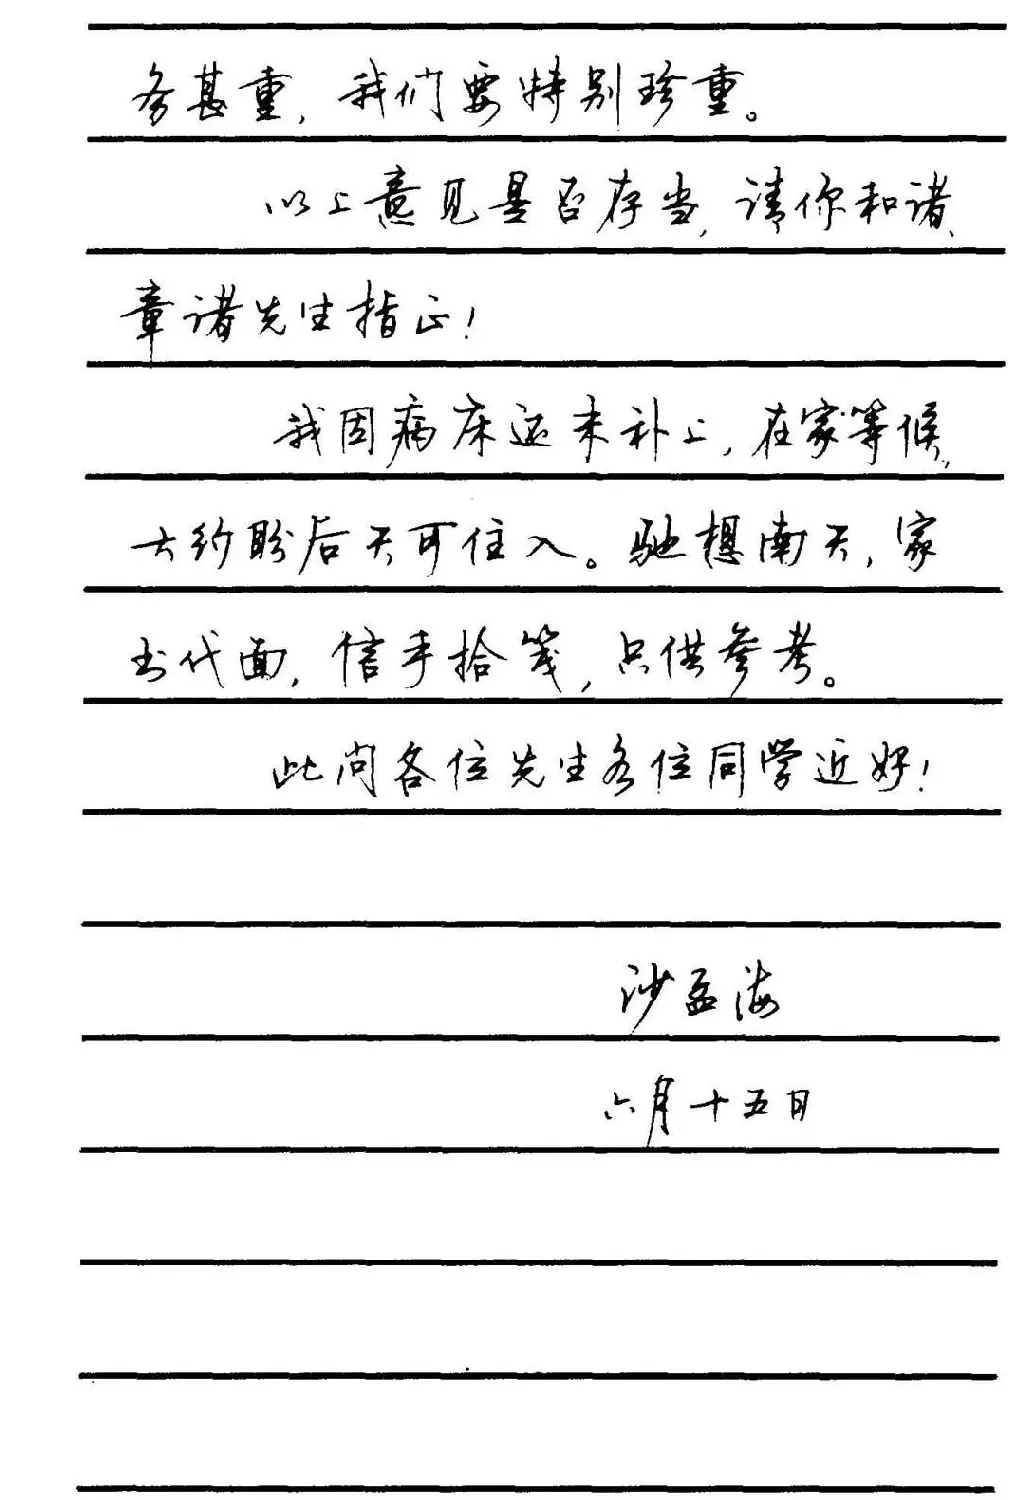 务甚重，我们要特别珍重。
以上意见是否存当，请你和诸、
章诸先生指正！
我因病床还未补上，在家等候，
大约盼后天可住入。驰想南天，家
书代面，信手拾笺，只供参考。
此问各位先生各位同学近好！
沙孟海
六月十五日